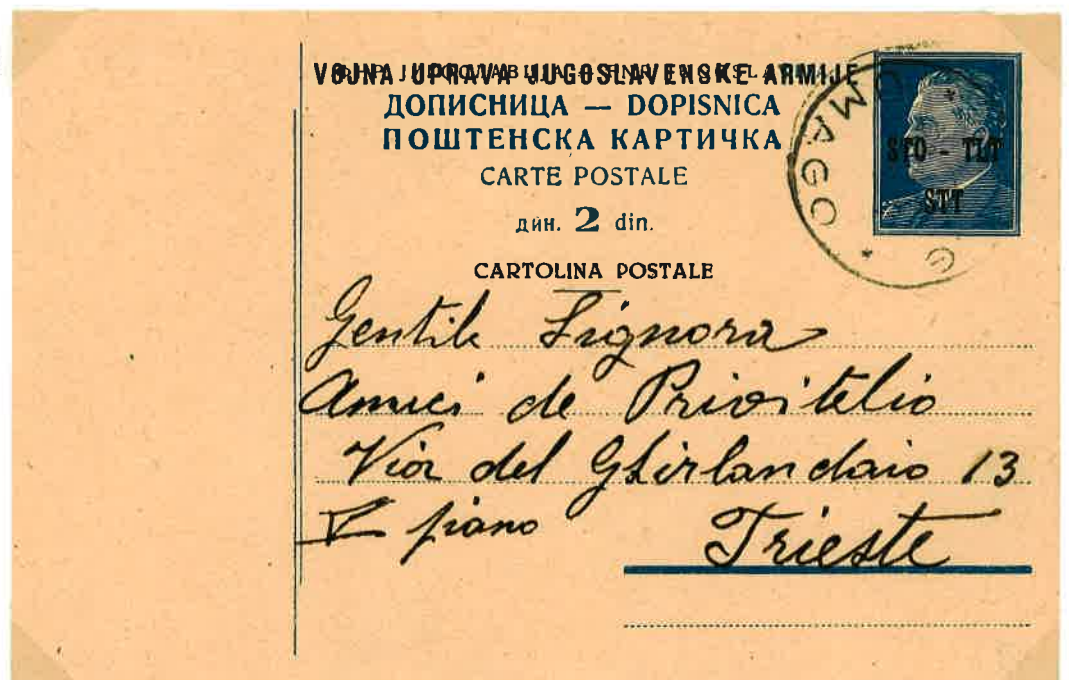 VOJNA UPRAVA JUGOSLAVENSKE ARMIJE
ДОПИСНИЦА — DOPISNICA
ПОШТЕНСКА КАРТИЧКА
CARTE POSTALE
дин. 2 din.
CARTOLINA POSTALE
STO - TLT
STT
MAGO
Gentile Signora
Amici de Privitelio
Via del Ghirlandaio 13
V piano
Trieste